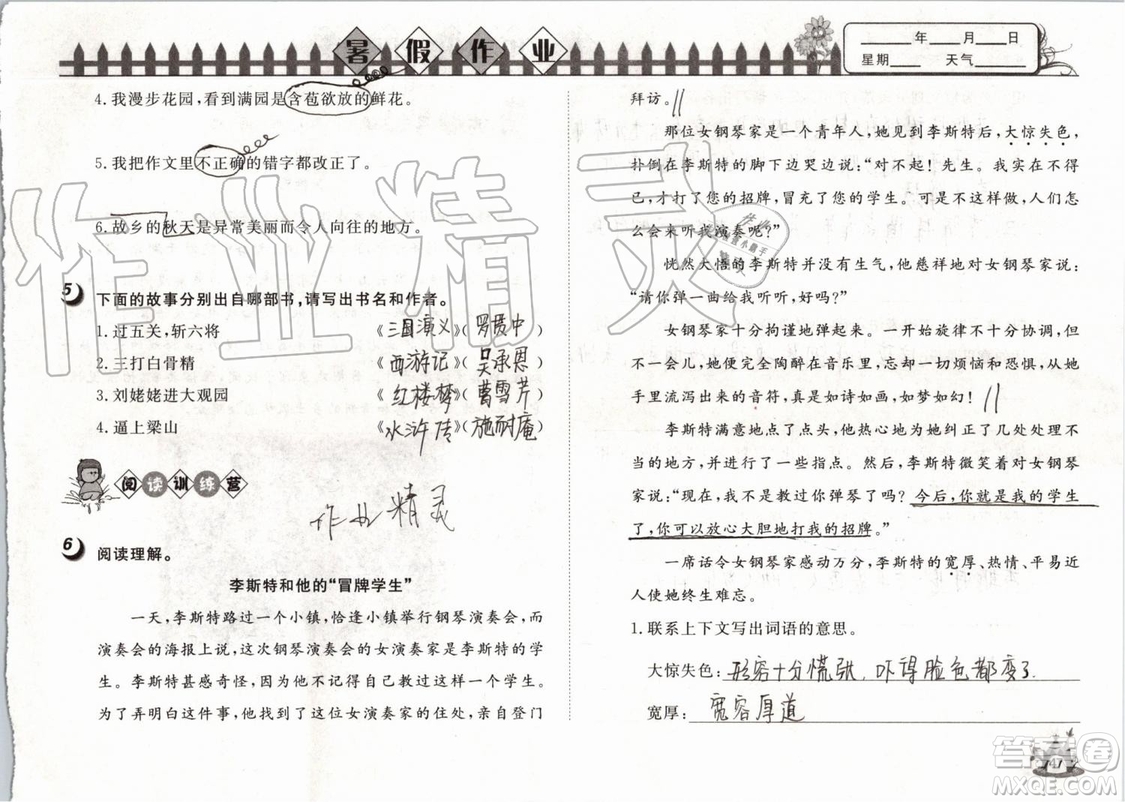 暑假作业
____年___月___日
星期___ 天气____
4.我漫步花园,看到满园是含苞欲放的鲜花。
5.我把作文里不正确的错字都改正了。
6.故乡的秋天是异常美丽而令人向往的地方。
5 下面的故事分别出自哪部书,请写出书名和作者。
1.过五关,斩六将 《三国演义》(罗贯中)
2.三打白骨精 《西游记》(吴承恩)
3.刘姥姥进大观园 《红楼梦》(曹雪芹)
4.逼上梁山 《水浒传》(施耐庵)
阅读训练营
作业精灵
6 阅读理解。
李斯特和他的“冒牌学生”
一天,李斯特路过一个小镇,恰逢小镇举行钢琴演奏会,而
演奏会的海报上说,这次钢琴演奏会的女演奏家是李斯特的学
生。李斯特甚感奇怪,因为他不记得自己有过这样一个学生。
为了弄明白这件事,他找到了这位女演奏家的住处,亲自登门
拜访。
那位女钢琴家是一个青年人,她见到李斯特后,大惊失色,
扑倒在李斯特的脚下边哭边说:“对不起!先生。我实在不得
已,才打了您的招牌,冒充了您的学生。不是这样做,人们怎
么会来听我演奏呢?”
恍然大悟的李斯特并没有生气,他慈祥地对女钢琴家说:
“请你弹一曲给我听听,好吗?”
女钢琴家十分拘谨地弹起来。一开始旋律不十分协调,但
不一会,她便完全陶醉在音乐里,忘却了一切烦恼和恐惧,从她
手里流泻出来的音符,真是如诗如画,如梦如幻!
李斯特满意地点了点头,他热情地为她纠正了几处处理不
当的地方,然后又进行了一些指点。李斯特微笑着对女钢琴
家说:“现在,我不是已经教过你弹琴了吗?今后,你就是我的学生
了,你可以放心大胆地打我的招牌。”
一席话令女钢琴家感动万分,李斯特的宽厚、热情、平易近
人使她终生难忘。
1.联系上下文写出词语的意思。
大惊失色:形容十分慌张,吓得脸色都变了
宽厚:宽容厚道
作业精灵
答案圈
MXQE.COM
41